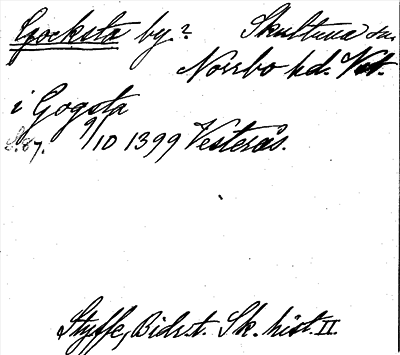 Gocksta by? Skultuna sn.
Norrbo hd. Vst.
i Gogsta
S. 87. 9/10 1399 Vesterås.
Styffe, Bidr. t. Sk. hist. II.